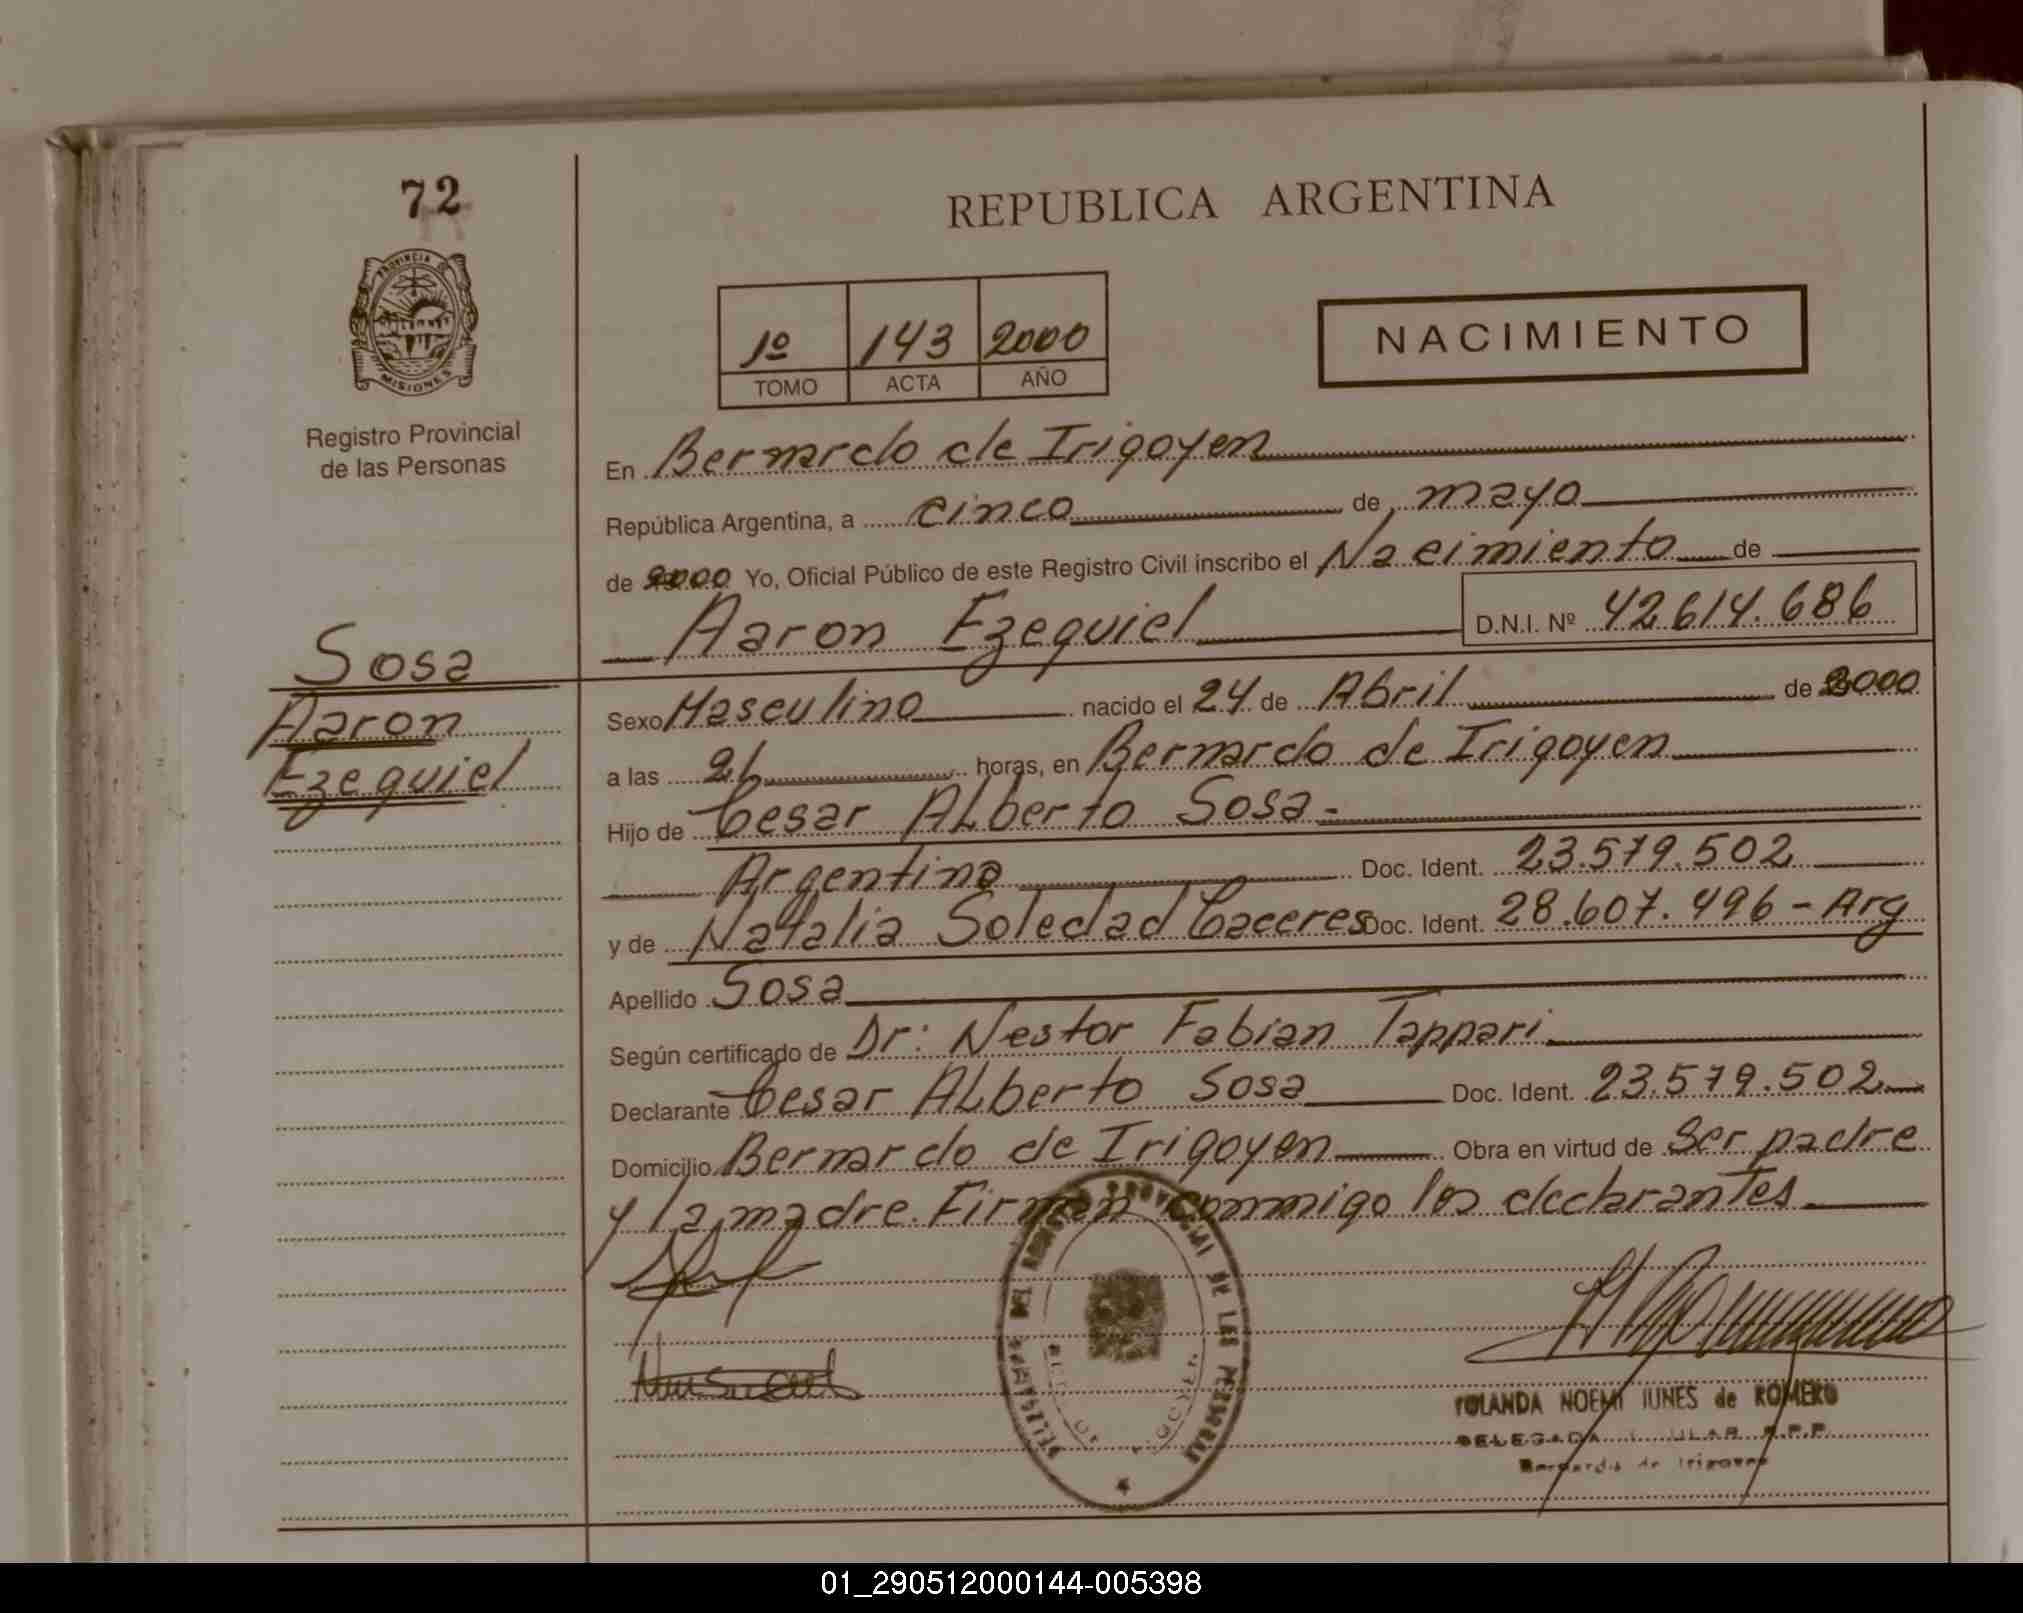 72
REPUBLICA ARGENTINA
PROVINCIA DE
MISIONES
Registro Provincial
de las Personas
1º 143 2000
TOMO ACTA AÑO
NACIMIENTO
En Bernardo de Irigoyen
República Argentina, a cinco de mayo
de 2000 Yo, Oficial Público de este Registro Civil inscribo el Nacimiento de
Aaron Ezequiel D.N.I. Nº 42.614.686
Sosa
Aaron
Ezequiel
Sexo Masculino nacido el 24 de Abril de 2000
a las 21 horas, en Bernardo de Irigoyen
Hijo de Cesar Alberto Sosa-
Argentino Doc. Ident. 23.579.502
y de Natalia Soledad Caceres Doc. Ident. 28.607.496 - Arg
Apellido Sosa
Según certificado de Dr: Nestor Fabian Tappari
Declarante Cesar Alberto Sosa Doc. Ident. 23.579.502
Domicilio Bernardo de Irigoyen Obra en virtud de Ser padre
y la madre. Firman conmigo los declarantes
PROVINCIAL DE LAS PERSONAS
YOLANDA NOEMI IUNES de ROMERO
DELEGADA TITULAR R.P.P.
Bernardo de Irigoyen
01_290512000144-005398